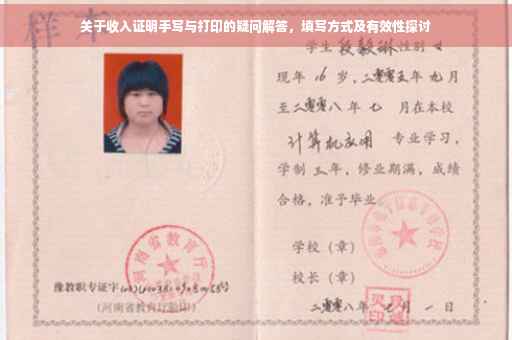 关于收入证明手写与打印的疑问解答，填写方式及有效性探讨
样本
学生段毅琳性别女
现年16岁，二零零五年九月
至二零零八年七月在本校
计算机应用专业学习，
学制三年，修业期满，成绩
合格，准予毕业
学校（章）
校长（章）
二零零八年七月一日
河南省教育厅
豫教职专证字
(河南省教育厅验印)